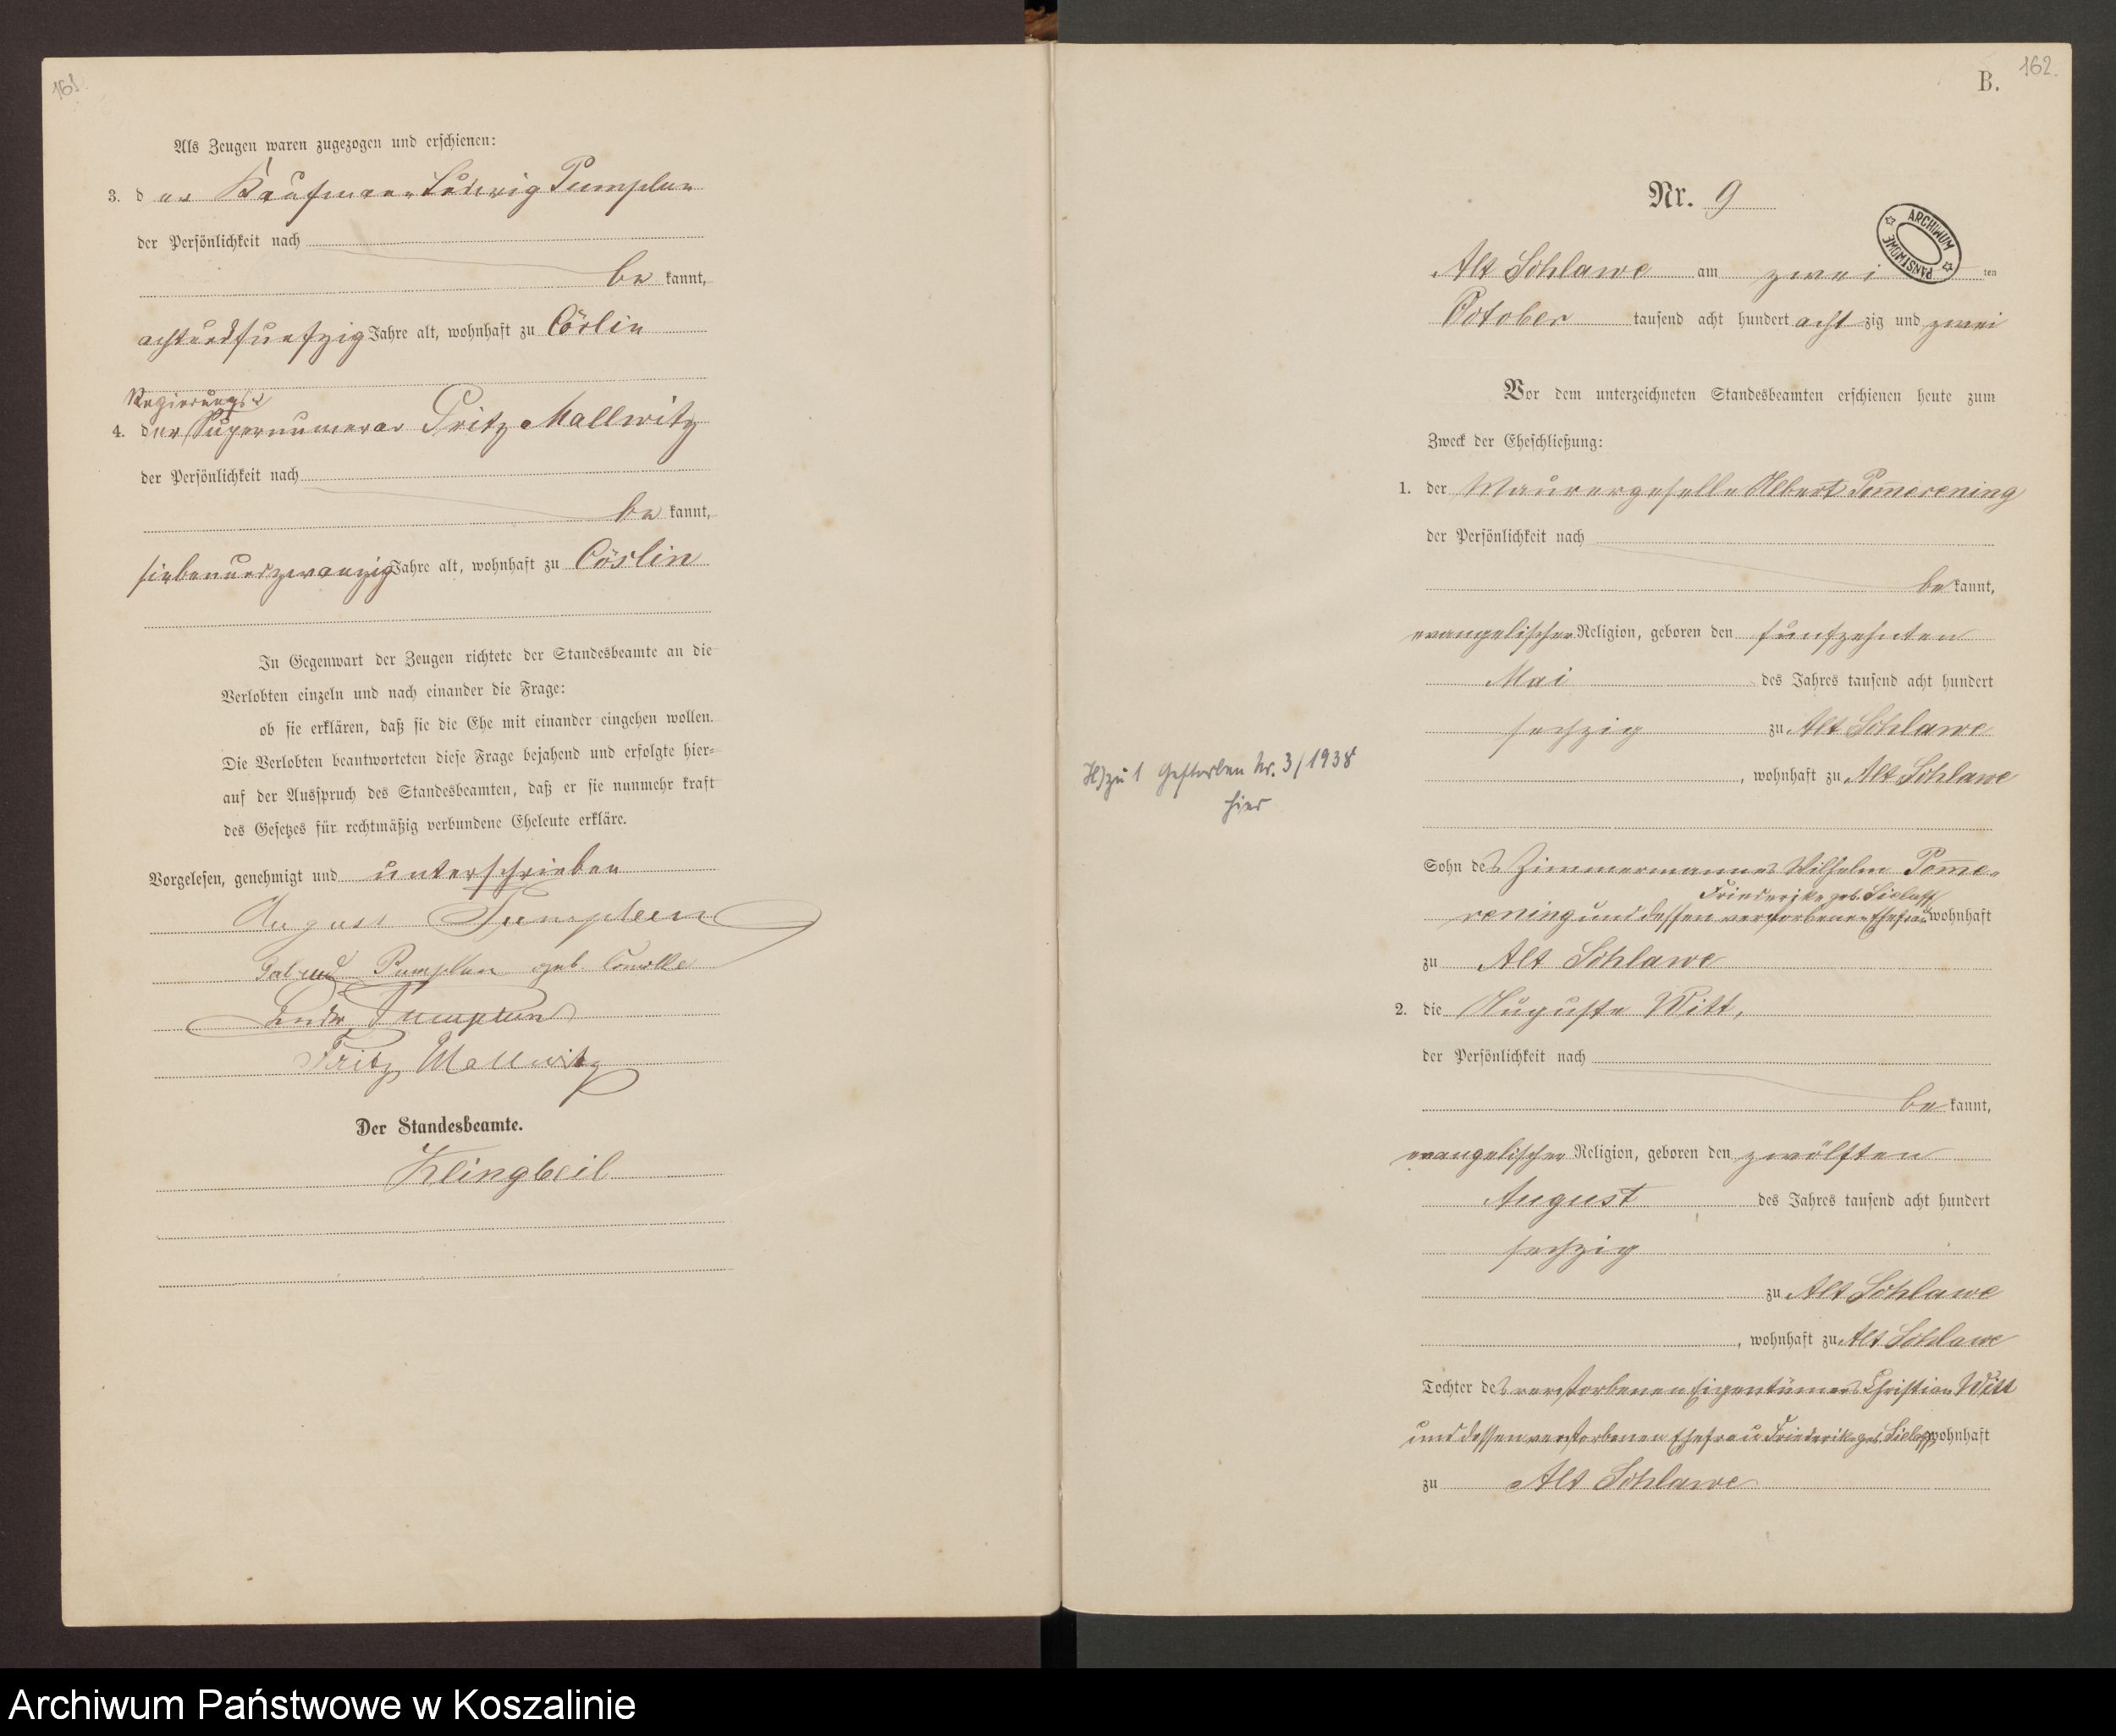 161.
Als Zeugen waren zugezogen und erschienen:
3. der Kaufmann Ludwig Pumplun
der Persönlichkeit nach
be kannt,
achtundfunfzig Jahre alt, wohnhaft zu Cörlin
Regierungs
4. der Supernumerar Fritz Mallwitz
der Persönlichkeit nach
be kannt,
siebenundzwanzig Jahre alt, wohnhaft zu Cöslin
In Gegenwart der Zeugen richtete der Standesbeamte an die
Verlobten einzeln und nach einander die Frage:
ob sie erklären, daß sie die Ehe mit einander eingehen wollen.
Die Verlobten beantworteten diese Frage bejahend und erfolgte hier-
auf der Ausspruch des Standesbeamten, daß er sie nunmehr kraft
des Gesetzes für rechtmäßig verbundene Eheleute erkläre.
Vorgelesen, genehmigt und unterschrieben
August Pumplun
Pumplun geb.
Pumplun
Fritz Mallwitz
Der Standesbeamte.
Klingbeil
162.
B.
Nr. 9
ARCHIWUM PAŃSTWOWE
Alt Schlawe am zwei ten
October tausend acht hundert acht zig und zwei
Vor dem unterzeichneten Standesbeamten erschienen heute zum
Zweck der Eheschließung:
1. der Maurergeselle Albert Pom̅erening
der Persönlichkeit nach
be kannt,
evangelischer Religion, geboren den funfzehnten
Mai des Jahres tausend acht hundert
sechzig zu Alt Schlawe
, wohnhaft zu Alt Schlawe
zu 1 Gestorben Nr. 3/1938
hier
Sohn des Zimmermannes Wilhelm Pom̅e-
Friederike geb. Sielaff
rening und dessen verstorbenen Ehefrau wohnhaft
zu Alt Schlawe
2. die Auguste Witt,
der Persönlichkeit nach
be kannt,
evangelischer Religion, geboren den zwölften
August des Jahres tausend acht hundert
sechzig
zu Alt Schlawe
, wohnhaft zu Alt Schlawe
Tochter des verstorbenen Eigentümers Christian Witt
und dessen verstorbenen Ehefrau Friederike geb. Sielaff wohnhaft
zu Alt Schlawe
Archiwum Państwowe w Koszalinie